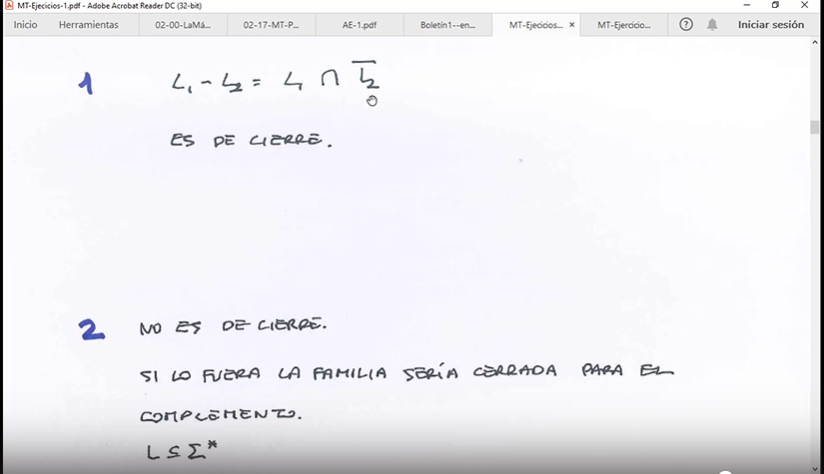 MT-Ejecicios-1.pdf - Adobe Acrobat Reader DC (32-bit)
Inicio Herramientas 02-00-LaMá... 02-17-MT-P... AE-1.pdf Boletín1--en... MT-Ejecicios... × MT-Ejercicio... Iniciar sesión
1 L₁ - L₂ = L₁ ∩ L̅₂
ES DE CIERRE.
2 NO ES DE CIERRE.
SI LO FUERA LA FAMILIA SERÍA CERRADA PARA EL
COMPLEMENTO.
L ⊆ Σ*